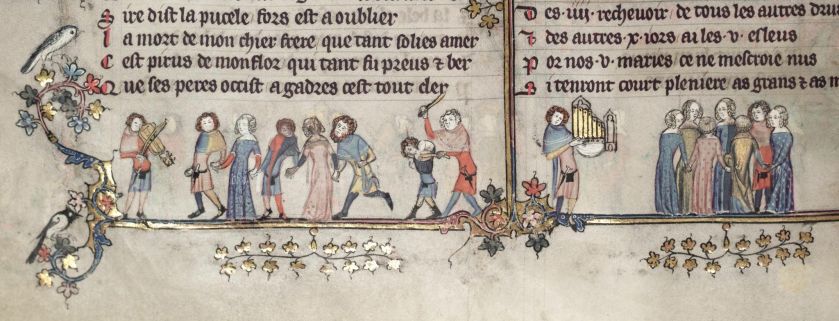 Sire dist la pucele fors est a oublier
La mort de mon chier frere que tant solies amer
C est pirus de monflor qui tant fu preus ⁊ ber
Que ses peres occist a gadres cest tout cler
D es · iiij · rechevoir de tous les autres
des autres · x · iors ai les · v · esleus
P or nos · v · maries ce ne mescroie nus
S i tenront court pleniere as grans ⁊ as m